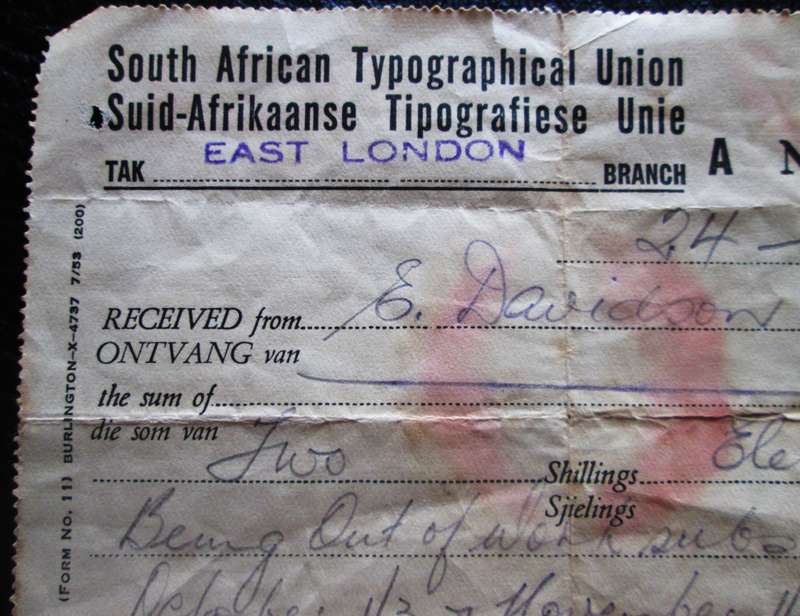 South African Typographical Union
Suid-Afrikaanse Tipografiese Unie
EAST LONDON
TAK BRANCH A N
24 -
RECEIVED from E. Davidson
ONTVANG van
the sum of
die som van
Two Shillings Ele
Sjielings
Being Out of Work subs
October 1/3
(FORM NO. 11) BURLINGTON—X—4737 7/53 (200)